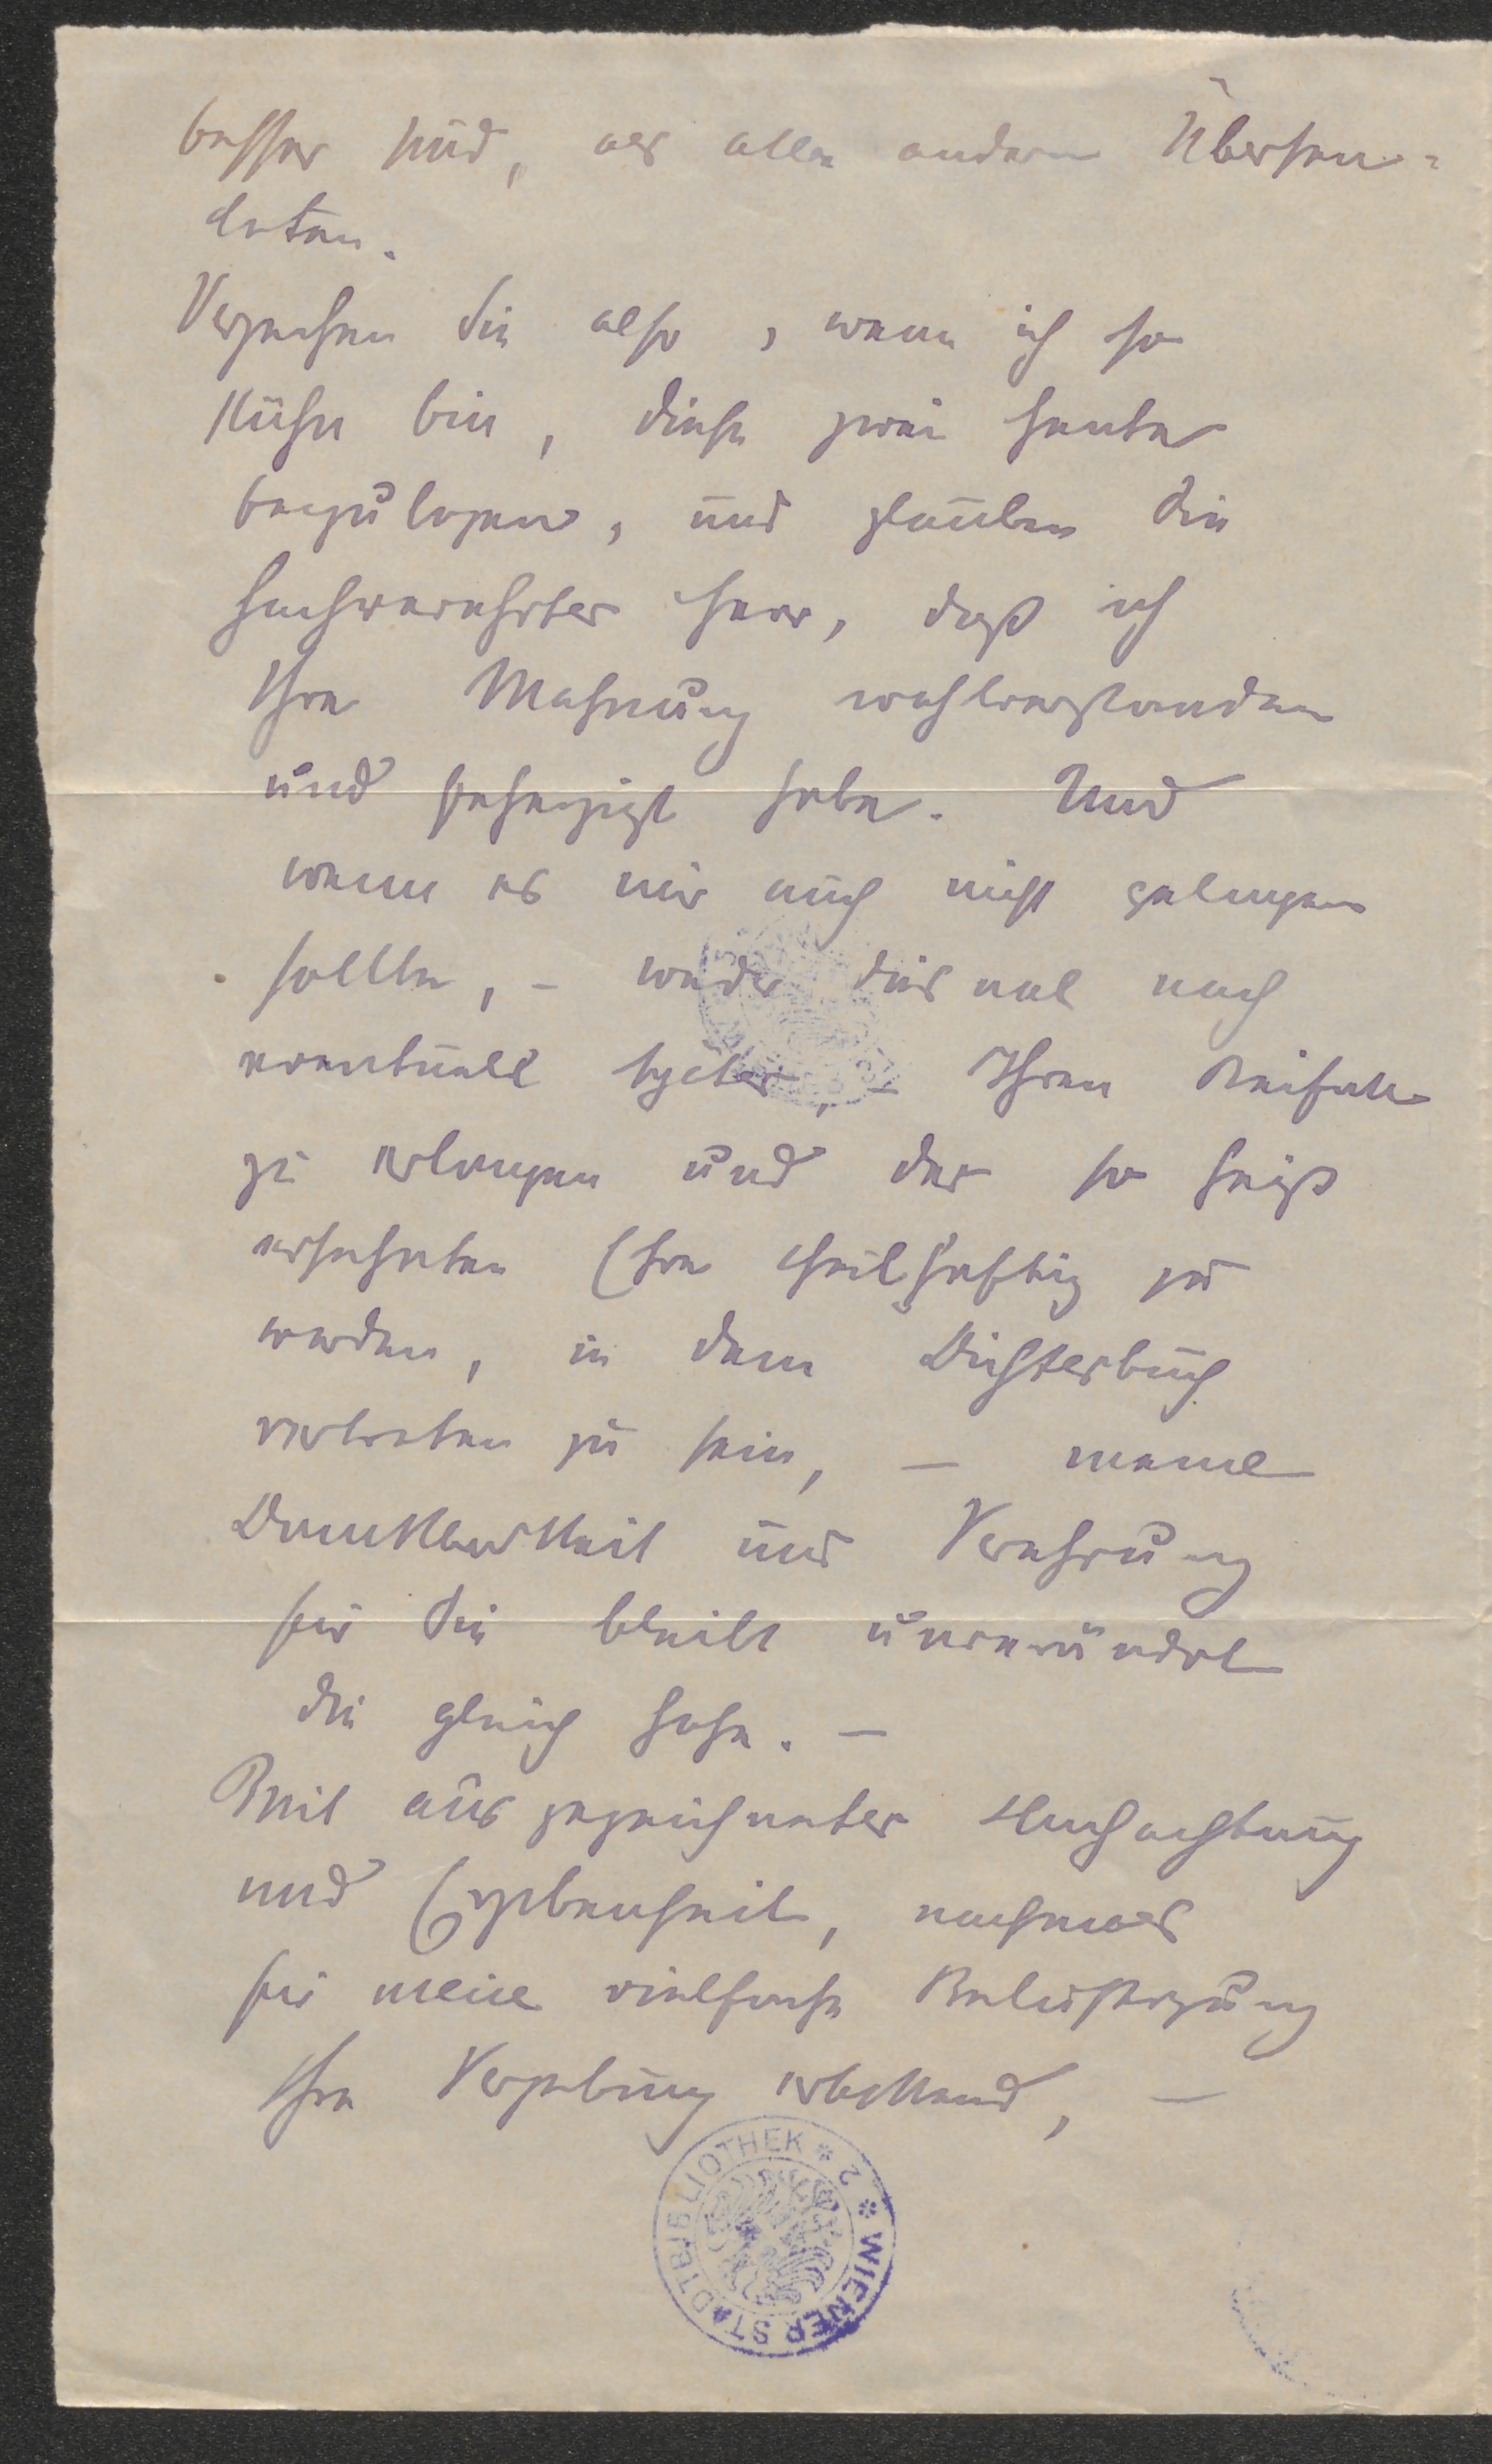 besser sind, als alle andern Übersen=
deten.
Verzeihen Sie also, wenn ich so
kühn bin, diese zwei heute
beizulegen, und glauben Sie
hochverehrter Herr, daß ich
Ihre Mahnung wohlverstanden
und beherzigt habe. Und
wenn es mir auch nicht gelingen
sollte, – weder diesmal noch
eventuell später, – Ihren Beifall
zu erlangen und der so heiß
ersehnten Ehre theilhaftig zu
werden, in dem Dichterbuch
vertreten zu sein, – meine
Dankbarkeit und Verehrung
für Sie bleibt unverändert
die gleich hohe. –
Mit ausgezeichneter Hochachtung
und Ergebenheit, nochmals
für meine vielfache Belästigung
Ihre Vergebung erbittend, –
WIENER STADTBIBLIOTHEK * 2 *